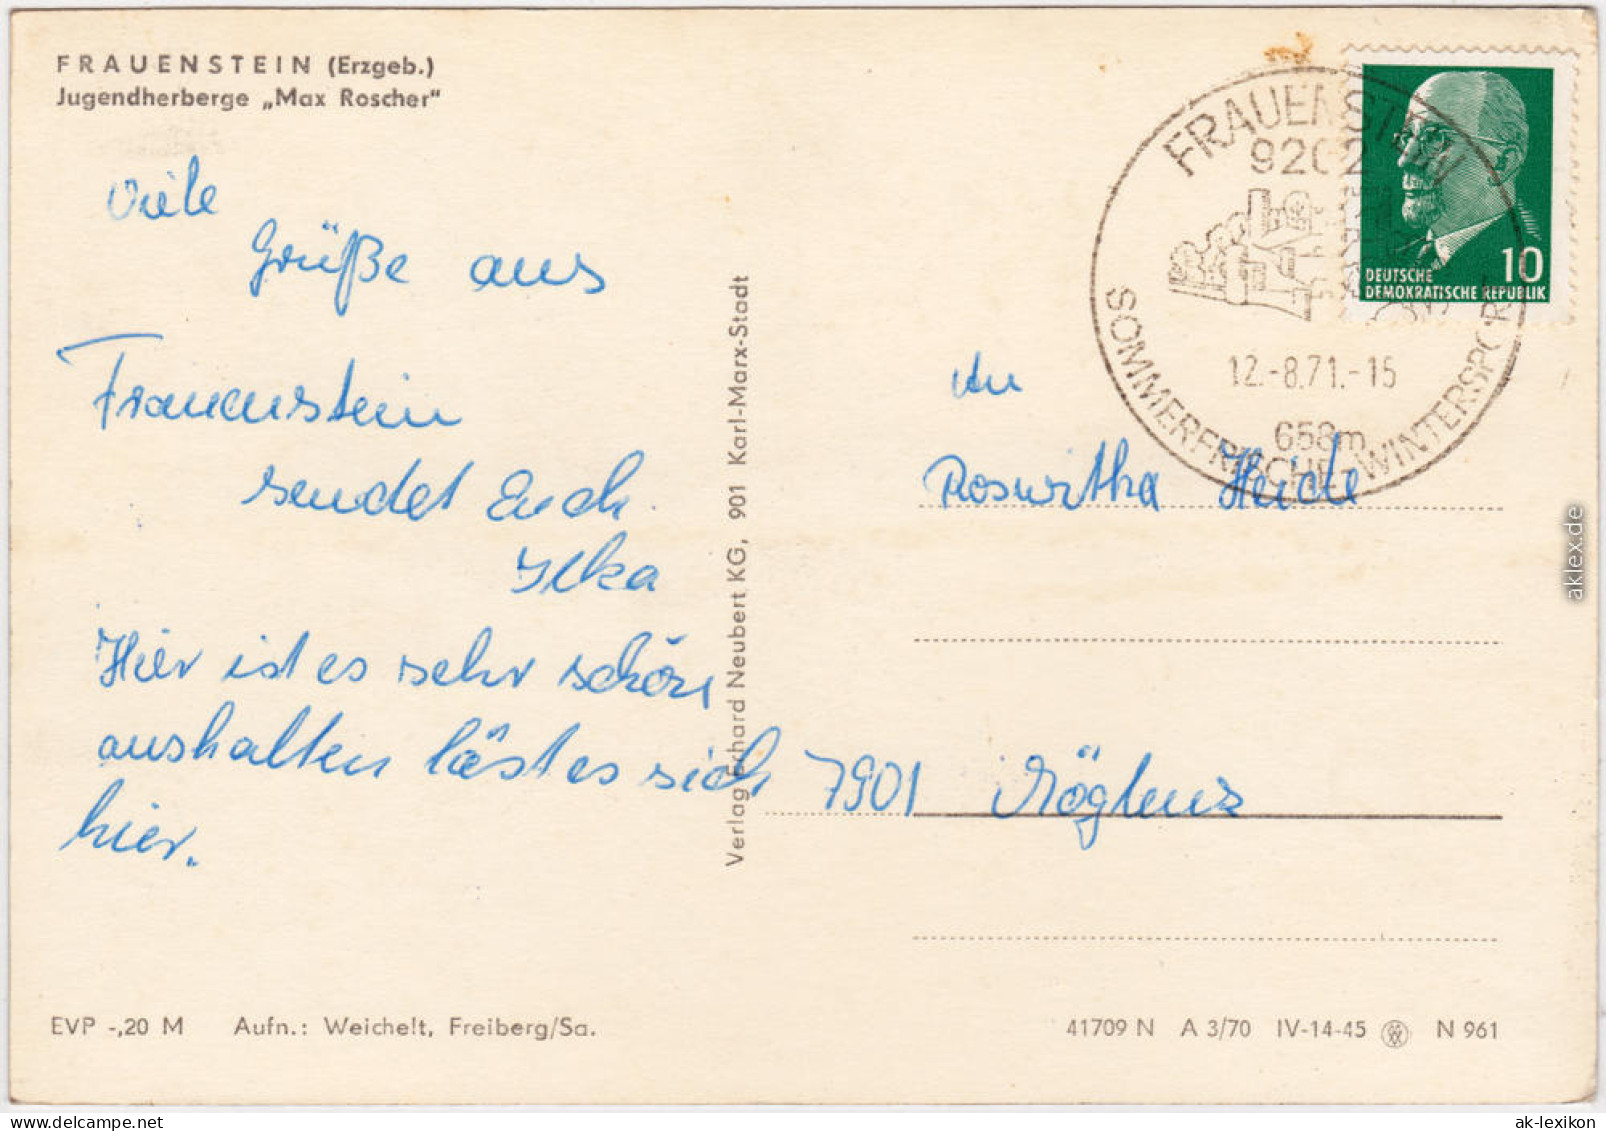 FRAUENSTEIN (Erzgeb.)
Jugendherberge „Max Roscher"
Viele
Grüße aus
Frauenstein
sendet Euch
Ilka
Hier ist es sehr schön
aushalten läst es sich
hier.
Verlag Erhard Neubert KG, 901 Karl-Marx-Stadt
FRAUENSTEIN
9202
12.-8.71.-15
658m
SOMMERFRISCHE - WINTERSPORT
10
DEUTSCHE
DEMOKRATISCHE REPUBLIK
An
Roswitha Heide
7901 Röglenz
EVP -,20 M Aufn.: Weichelt, Freiberg/Sa.
41709 N A 3/70 IV-14-45 N 961
aklex.de
ak-lexikon